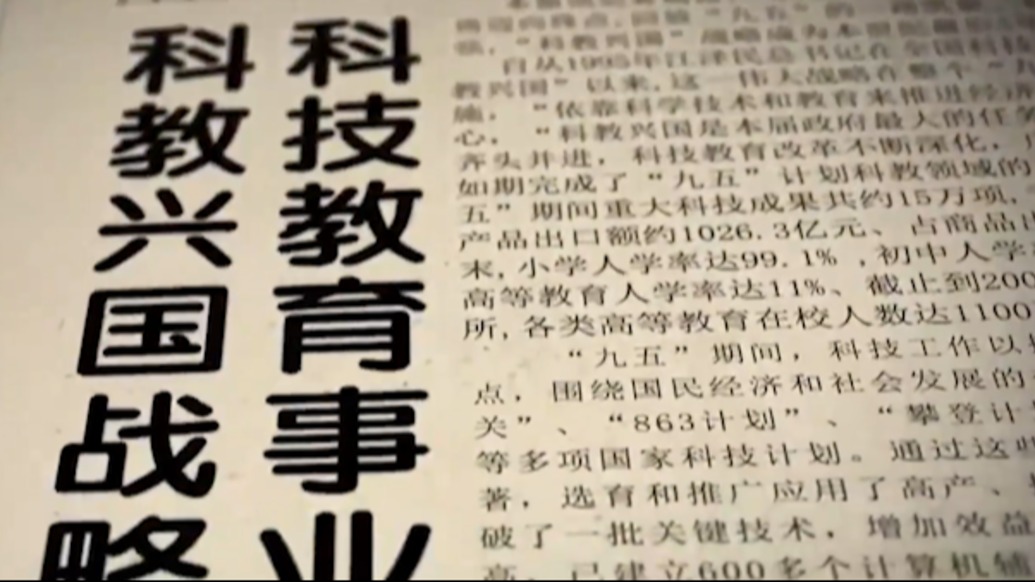 科教兴国战略
科技教育事业
自从1995年江泽民总书记在全国科技
教兴国”以来,这一伟大战略在整个“九
施，“依靠科学技术和教育来推进经济
心，“科教兴国是本届政府最大的任务
齐头并进，科技教育改革不断深化，
如期完成了“九五”计划科教领域的
五”期间重大科技成果共约15万项,
产品出口额约1026.3亿元、占商品
末,小学人学率达99.1%,初中人学
高等教育人学率达11%、截止到200
所,各类高等教育在校人数达1100
“九五”期间，科技工作以
点，围绕国民经济和社会发展的
关”、“863计划”、“攀登计
等多项国家科技计划。通过这些
著，选育和推广应用了高产、
破了一批关键技术，增加效益
高，已建立600多个计算机辅